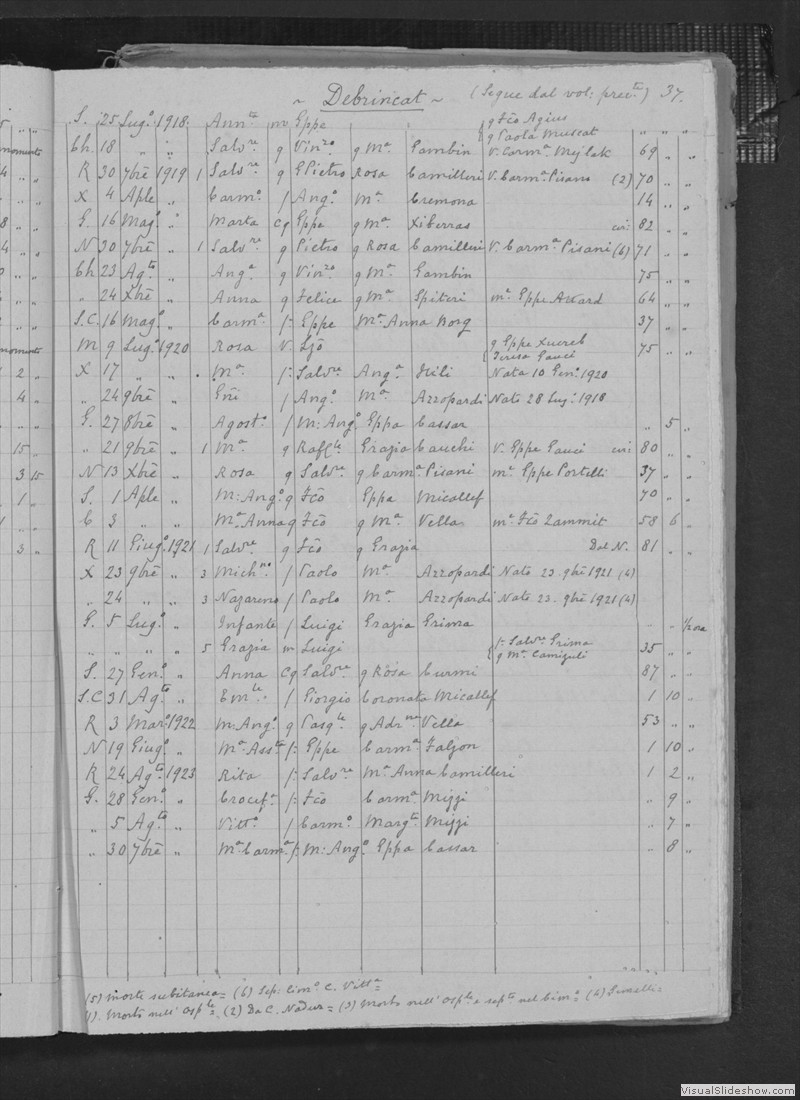 ~ Debrincat ~ (Segue dal vol: prec.te) 37.
S. 25 Lug.o 1918. Ann.ta m Eppe { g Fco Agius
g Paola Muscat " " "
Ch. 18 " " Salv.re g Vin.zo g M.a Gambin V. Carm.a Mejlak 69 " "
R 30 7bre 1919 1 Salv.re g G Pietro Rosa Camilleri V. Carm.a Pisano (2) 70 " "
X 4 Aple " Carm.o f Ang.o M.a Cremona 14 " "
G. 16 Mag.o " Marta cg Eppe g M.a Xiberras 82 " "
N 30 7bre " 1 Salv.re g Pietro g Rosa Camilleri V. Carm.a Pisani (6) 71 " "
Ch 23 Ag.to " Ang.a g Vin.zo g M.a Gambin 75 " "
" 24 Xbre " Anna g Felice g M.a Spiteri m.e Eppe Attard 64 " "
S.C. 16 Mag.o " Carm.a f: Eppe M.a Anna Borg 37 " "
M 9 Lug.o 1920 Rosa V. { g Eppe Xuereb
Teresa Gauci 75 " "
X 17 " " M.a f: Salv.re Ang.a Nata 10 Gen.o 1920
" 24 9bre " f Ang.o M.a Azzopardi Nato 28 Lug.o 1918
G. 27 8bre " Agost.o f M: Ang.o Eppa Cassar " 5 "
" 21 9bre " 1 M.a g Raff.le Grazia Cauchi V. Eppe Gauci 80 " "
N 13 Xbre " Rosa g Salv.re g Carm.a Pisani m.e Eppe Portelli 37 " "
S. 1 Aple " M: Ang.o g Fco Eppa Micallef 70 " "
C 3 " " M.a Anna g Fco g M.a Vella m.e Fco Zammit 58 6 "
R 11 Giug.o 1921 1 Salv.re g Fco g Grazia Dal N. 81 " "
X 23 9bre " 3 Mich.no f Paolo M.a Azzopardi Nato 23. 9bre 1921 (4)
" 24 " " 3 Nazareno f Paolo M.a Azzopardi Nato 23. 9bre 1921 (4)
G. 5 Lug.o " Infante f Luigi Grazia Grima " " 1/2 ora
" " " " 5 Grazia m Luigi { f: Salv.re Grima
g M.a 35 " "
S. 27 Gen.o " Anna Cg Salv.re g Rosa Curmi 87 " "
S.C 31 Ag.to " Em.le f Giorgio Coronata Micallef 1 10 "
R 3 Mar.o 1922 M: Ang.o g Pasq.le g Adr.na Vella 53 " "
N 19 Giug.o " M.a Ass.ta f: Eppe Carm.a Falzon 1 10 "
R 24 Ag.to 1923 Rita f: Salv.re M.a Anna Camilleri 1 2 "
G. 28 Gen.o " Crocef.a f: Fco Carm.a Mizzi " 9 "
" 5 Ag.to " Vitt.o f Carm.o Marg.ta Mizzi " 7 "
" 30 7bre " M.a Carm.a f: M: Ang.o Eppa Cassar " 8 "
(5) Morte subitanea = (6) Sep: Cim.o C. Vitt.a
(1). Morto nell' Osp.le = (2) Da C. Nadur = (3) Morto nell' Osp.le e sep.to nel Cim.o = (4) Gemelli =
VisualSlideshow.com